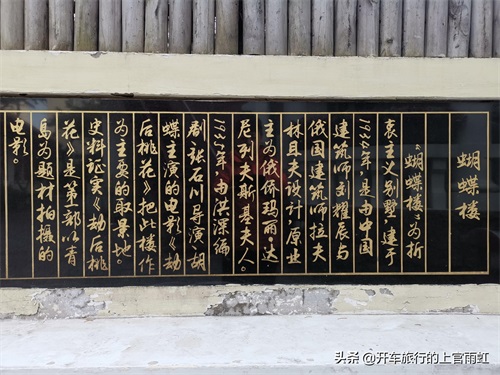 蝴蝶楼
“蝴蝶楼”为折
衷主义别墅,建于
1934年,是由中国
建筑师刘耀辰与
俄国建筑师拉夫
林且夫设计,原业
主为俄侨玛丽·达·
尼列夫斯基夫人。
1934年,由洪深编
剧、张石川导演、胡
蝶主演的电影《劫
后桃花》把此楼作
为主要的取景地。
史料证实《劫后桃
花》是第一部以青
岛为题材拍摄的
电影。
头条 @开车旅行的上官雨虹